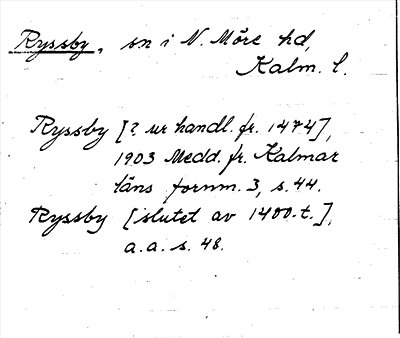 Ryssby, sn i N. Möre hd,
Kalm. l.
Ryssby [? ur handl. fr. 1474],
1903 Medd. fr. Kalmar
läns fornm. 3, s. 44.
Ryssby [islutet av 1400-t.],
a.a. s. 48.